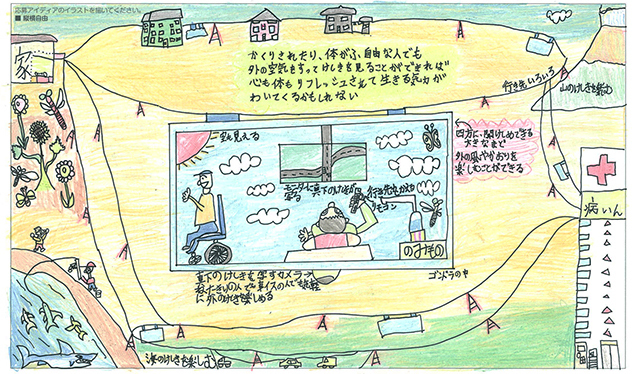 応募アイディアのイラストを描いてください。
■ 縦横自由
家
かくりされたり、体がふ自由な人でも
外の空気をすってけしきを見ることができれば
心も体もリフレッシュされて生きる気力が
わいてくるかもしれない
行き先いろいろ
山のけしきを楽しむ
空も見える
四方に開けしめできる
大きなまど
外の風やかおりを
楽しむことができる
モニターに真下のけしきが
写る
行き先をかえる
リモコン
のみもの
病いん
真下のけしきを写すカメラ
ねたきりの人でも車イスの人でも気軽
に外のけしきを楽しめる
ゴンドラの中
海のけしきを楽しむ